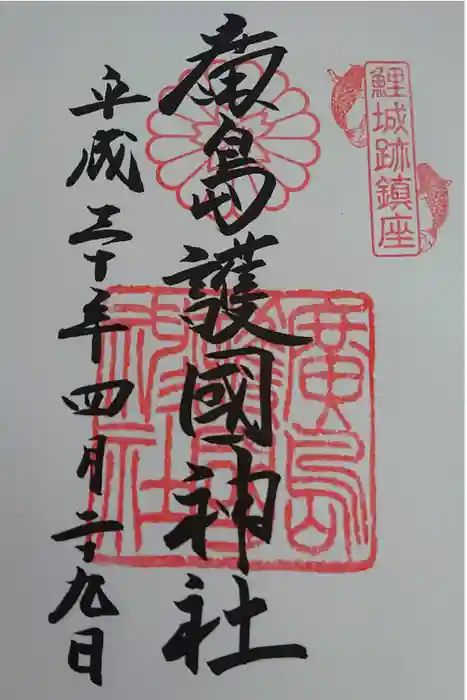 鯉城跡鎮座
廣島護國神社
廣島護國神社
平成三十年四月二十九日